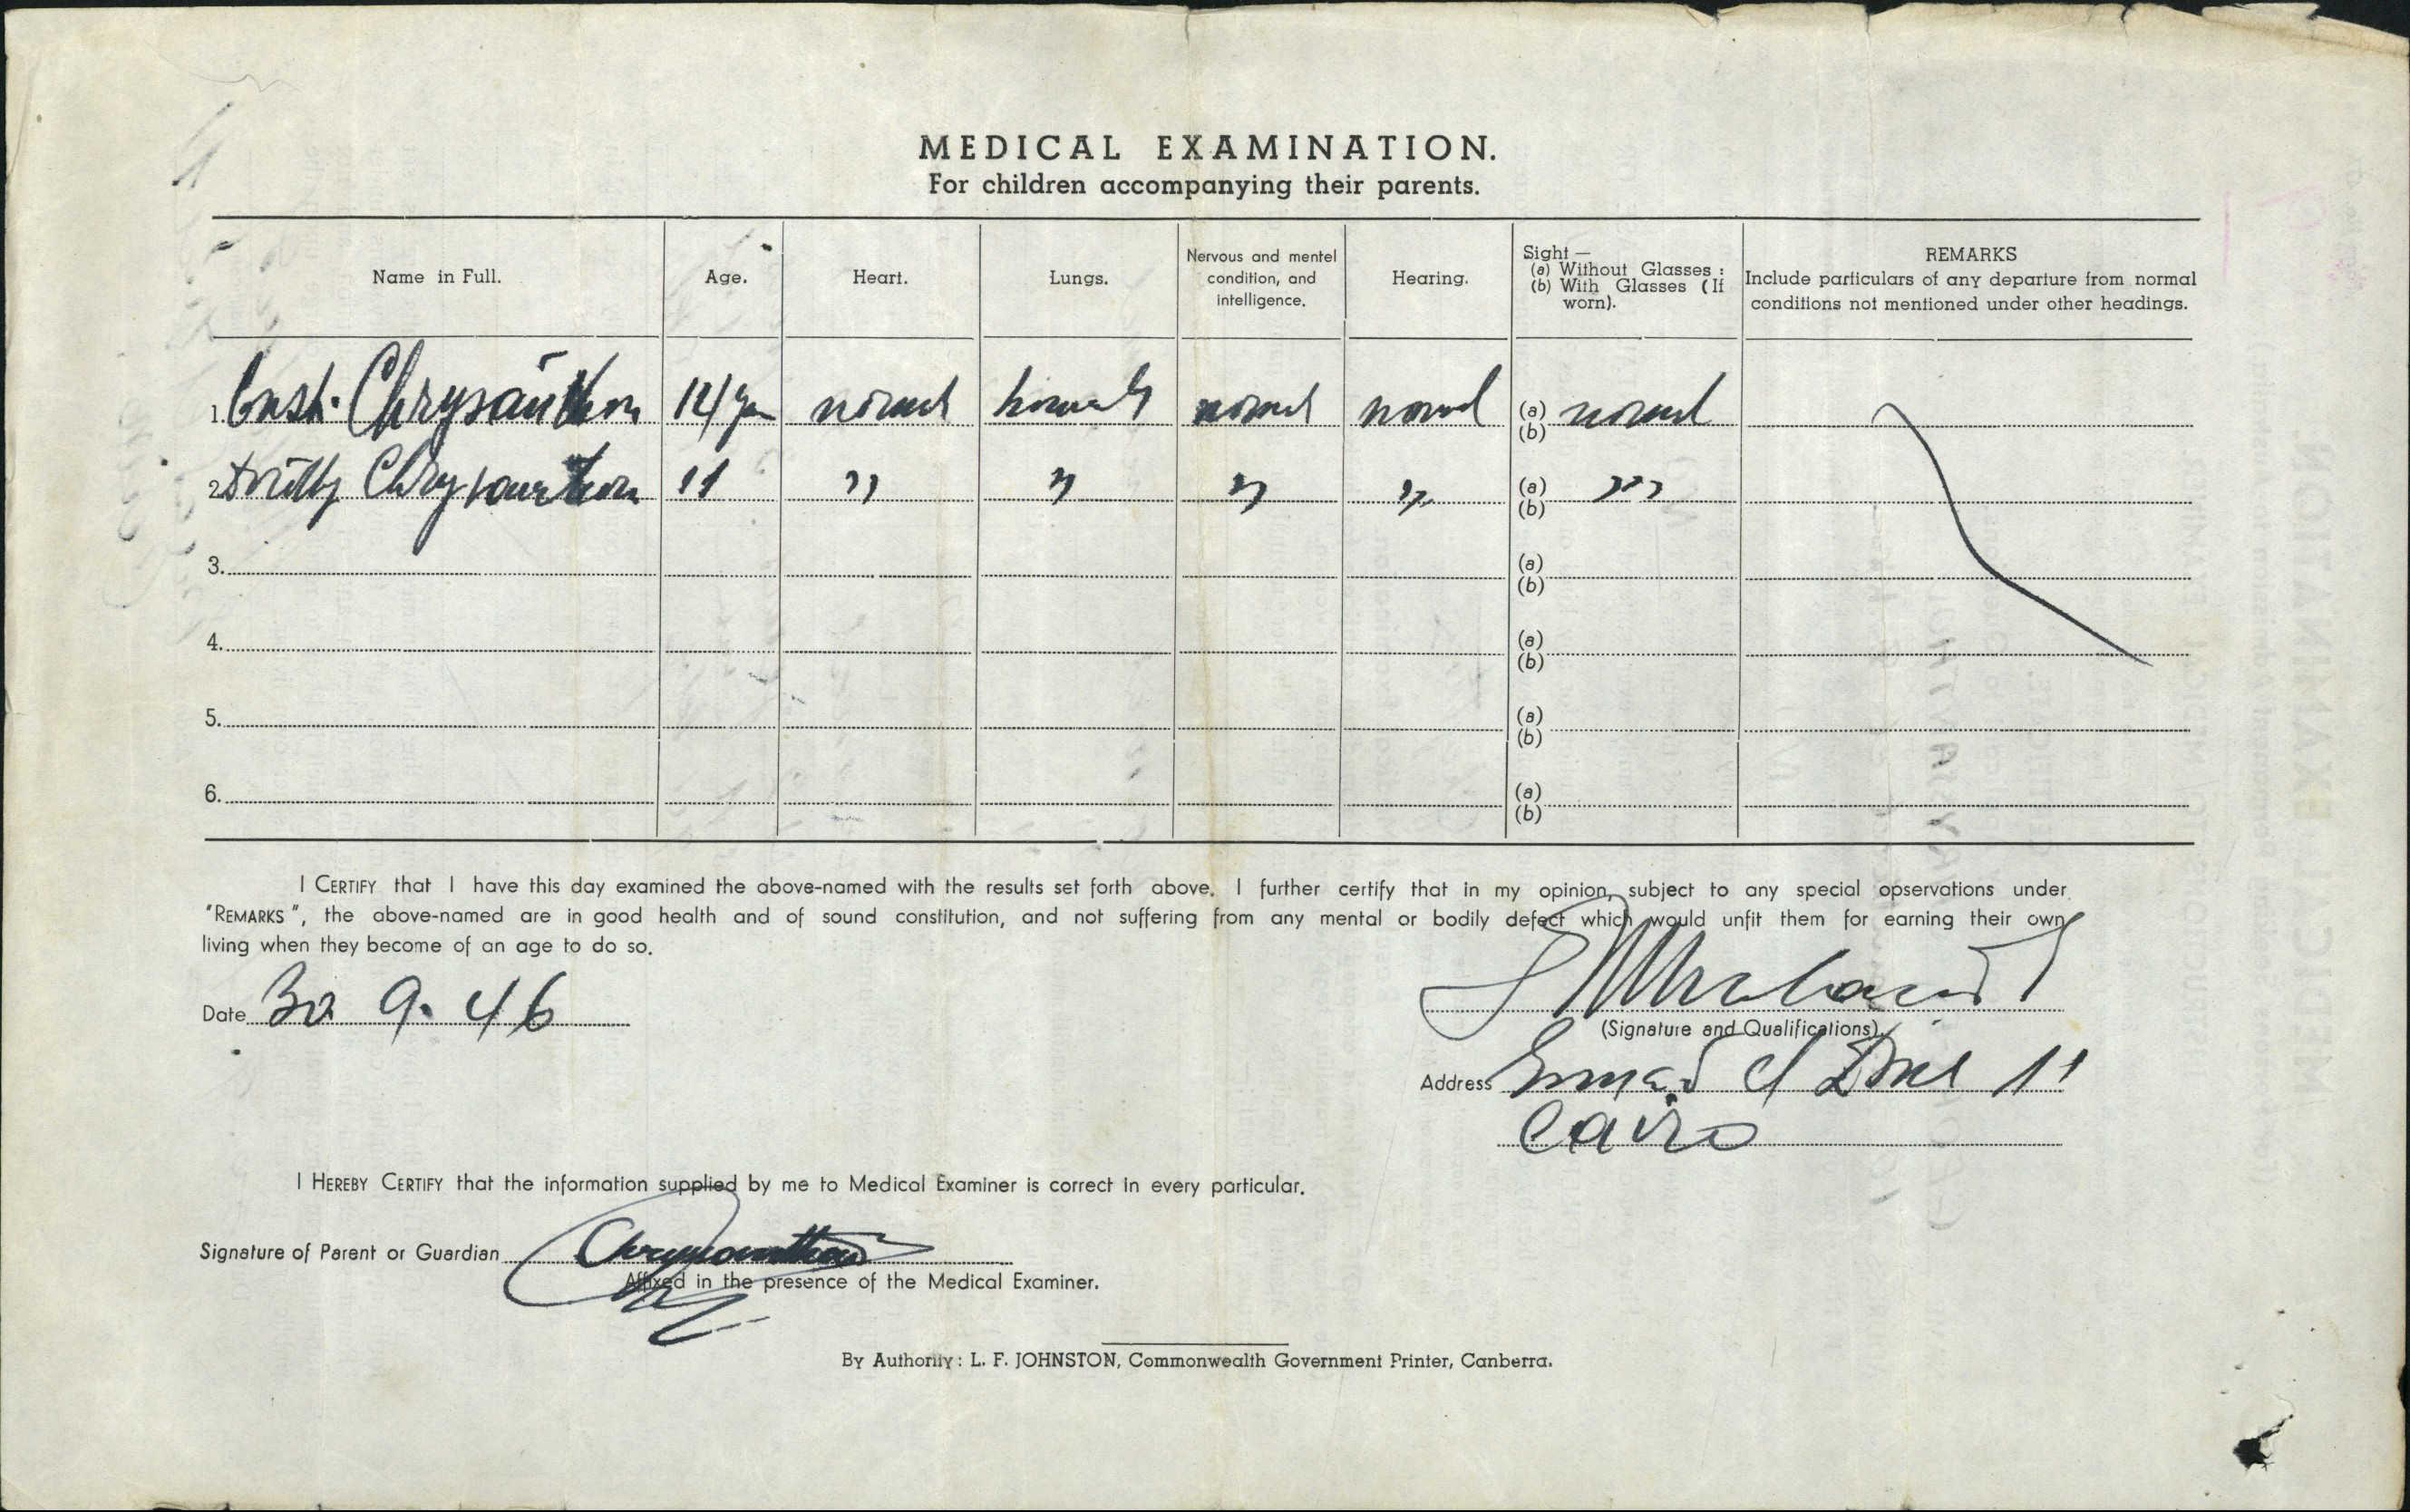 MEDICAL EXAMINATION.
For children accompanying their parents.
Name in Full. Age. Heart. Lungs. Nervous and mentel condition, and intelligence. Hearing. Sight — (a) Without Glasses : (b) With Glasses (If worn). REMARKS Include particulars of any departure from normal conditions not mentioned under other headings.
1. Const. Chrysanthou 14 normal normal normal normal (a) normal
(b)
2. Chrysanthou 11 " " " " (a) "
(b)
3. (a)
(b)
4. (a)
(b)
5. (a)
(b)
6. (a)
(b)
I CERTIFY that I have this day examined the above-named with the results set forth above. I further certify that in my opinion, subject to any special opservations under
"REMARKS", the above-named are in good health and of sound constitution, and not suffering from any mental or bodily defect which would unfit them for earning their own
living when they become of an age to do so.
Date 30. 9. 46
(Signature and Qualifications)
Address Emad el Dine 11
Cairo
I HEREBY CERTIFY that the information supplied by me to Medical Examiner is correct in every particular.
Signature of Parent or Guardian Chrysanthou
Affixed in the presence of the Medical Examiner.
By Authority: L. F. JOHNSTON, Commonwealth Government Printer, Canberra.